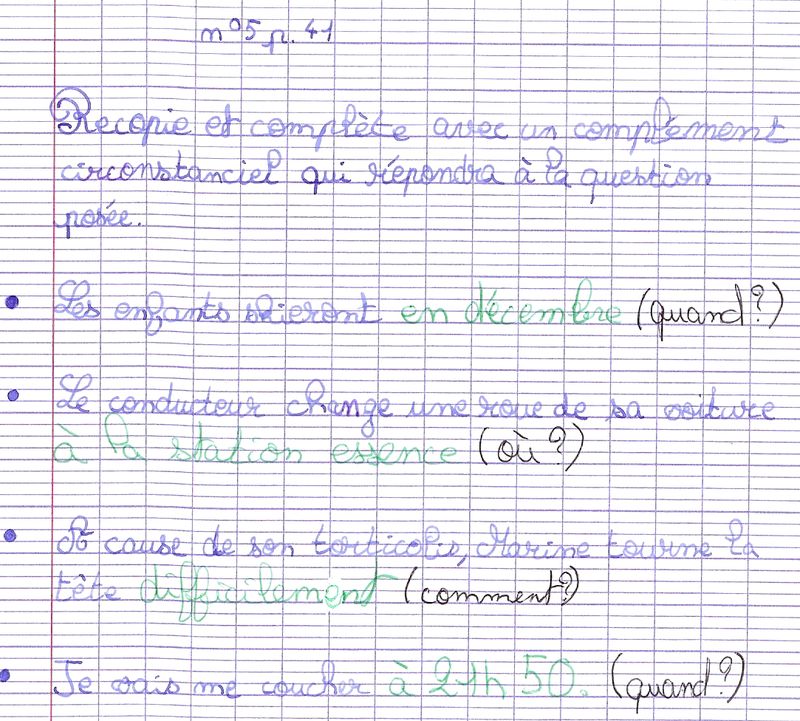 n°5 p. 41
Recopie et complète avec un complément
circonstanciel qui répondra à la question
posée.
Les enfants skieront en décembre (quand?)
Le conducteur change une roue de sa voiture
à la station essence (où?)
A cause de son torticolis, Marine tourne la
tête difficilement (comment?)
Je vais me coucher à 21h50. (quand?)